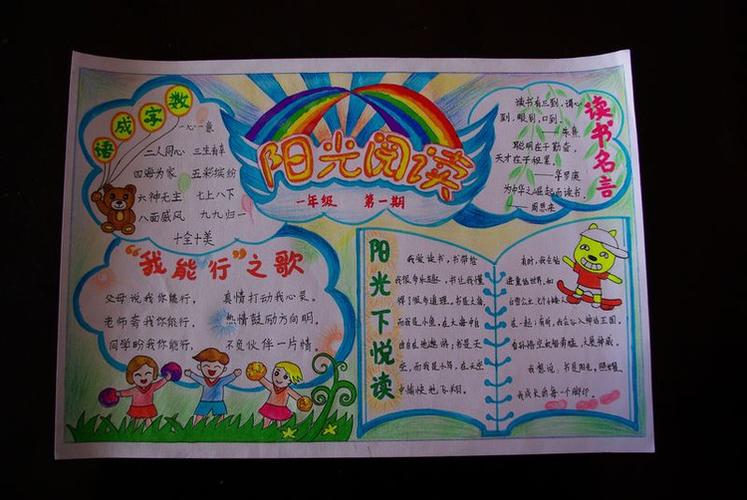 阳光阅读
一年级 第一期
数字成语
一心一意
二人同心 三生有幸
四海为家 五彩缤纷
六神无主 七上八下
八面威风 九九归一
十全十美
读书名言
读书有三到,谓心
到,眼到,口到。
——朱熹
聪明在于勤奋,
天才在于积累。
——华罗庚
为中华之崛起而读书。
——周恩来
“我能行”之歌
父母说我你能行, 真情打动我心灵。
老师希我你能行, 热情鼓励方向明。
同学盼我你能行, 不负伙伴一片情。
阳光下悦读
我爱读书,书带给
我很多乐趣,书让我懂
得了很多道理。书是大海,
而我是小鱼,在大海中
自由地遨游;书是天
空,而我是小鸟,在天空
中愉快地飞翔。
有时,我会钻
进童话世界,和
白雪公主、七个小矮人
在一起;有时,我会 入神话王国,
看孙悟空机智勇敢,大显神威。
我想说,书是阳光,照耀着
我成长的每一个脚印。